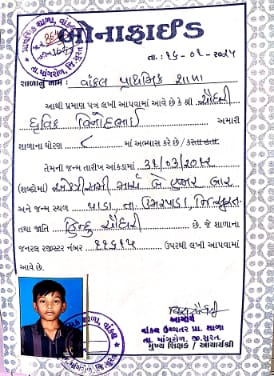 બોનાફાઈડ
તા. : ૧૬-૦૮-૨૦૨૫
શાળાનું નામ : વાંકલ પ્રાથમિક શાળા
આથી પ્રમાણ પત્ર લખી આપવામાં આવે છે કે શ્રી ચૌધરી
દ્રુવિક વિનોદભાઈ અમારી
શાળાના ધોરણ ૮ માં અભ્યાસ કરે છે / કરતા હતા.
તેમની જન્મ તારીખ આંકડામાં ૩૧/૦૩/૨૦૧૨
(શબ્દોમાં) એકત્રીસમી માર્ચ બે હજાર બાર
અને જન્મ સ્થળ પાડા તા. ઉમરપાડા, જિ. સુરત
તથા જાતિ હિન્દુ ચૌધરી છે. જે શાળાના
જનરલ રજીસ્ટર નંબર ૧૧૬૧૫ ઉપરથી લખી આપવામાં
આવે છે.
આચાર્ય
વાંકલ ઉચ્ચતર પ્રા. શાળા
તા. માંગરોળ, જી. સુરત.
મુખ્ય શિક્ષક / આચાર્યશ્રી